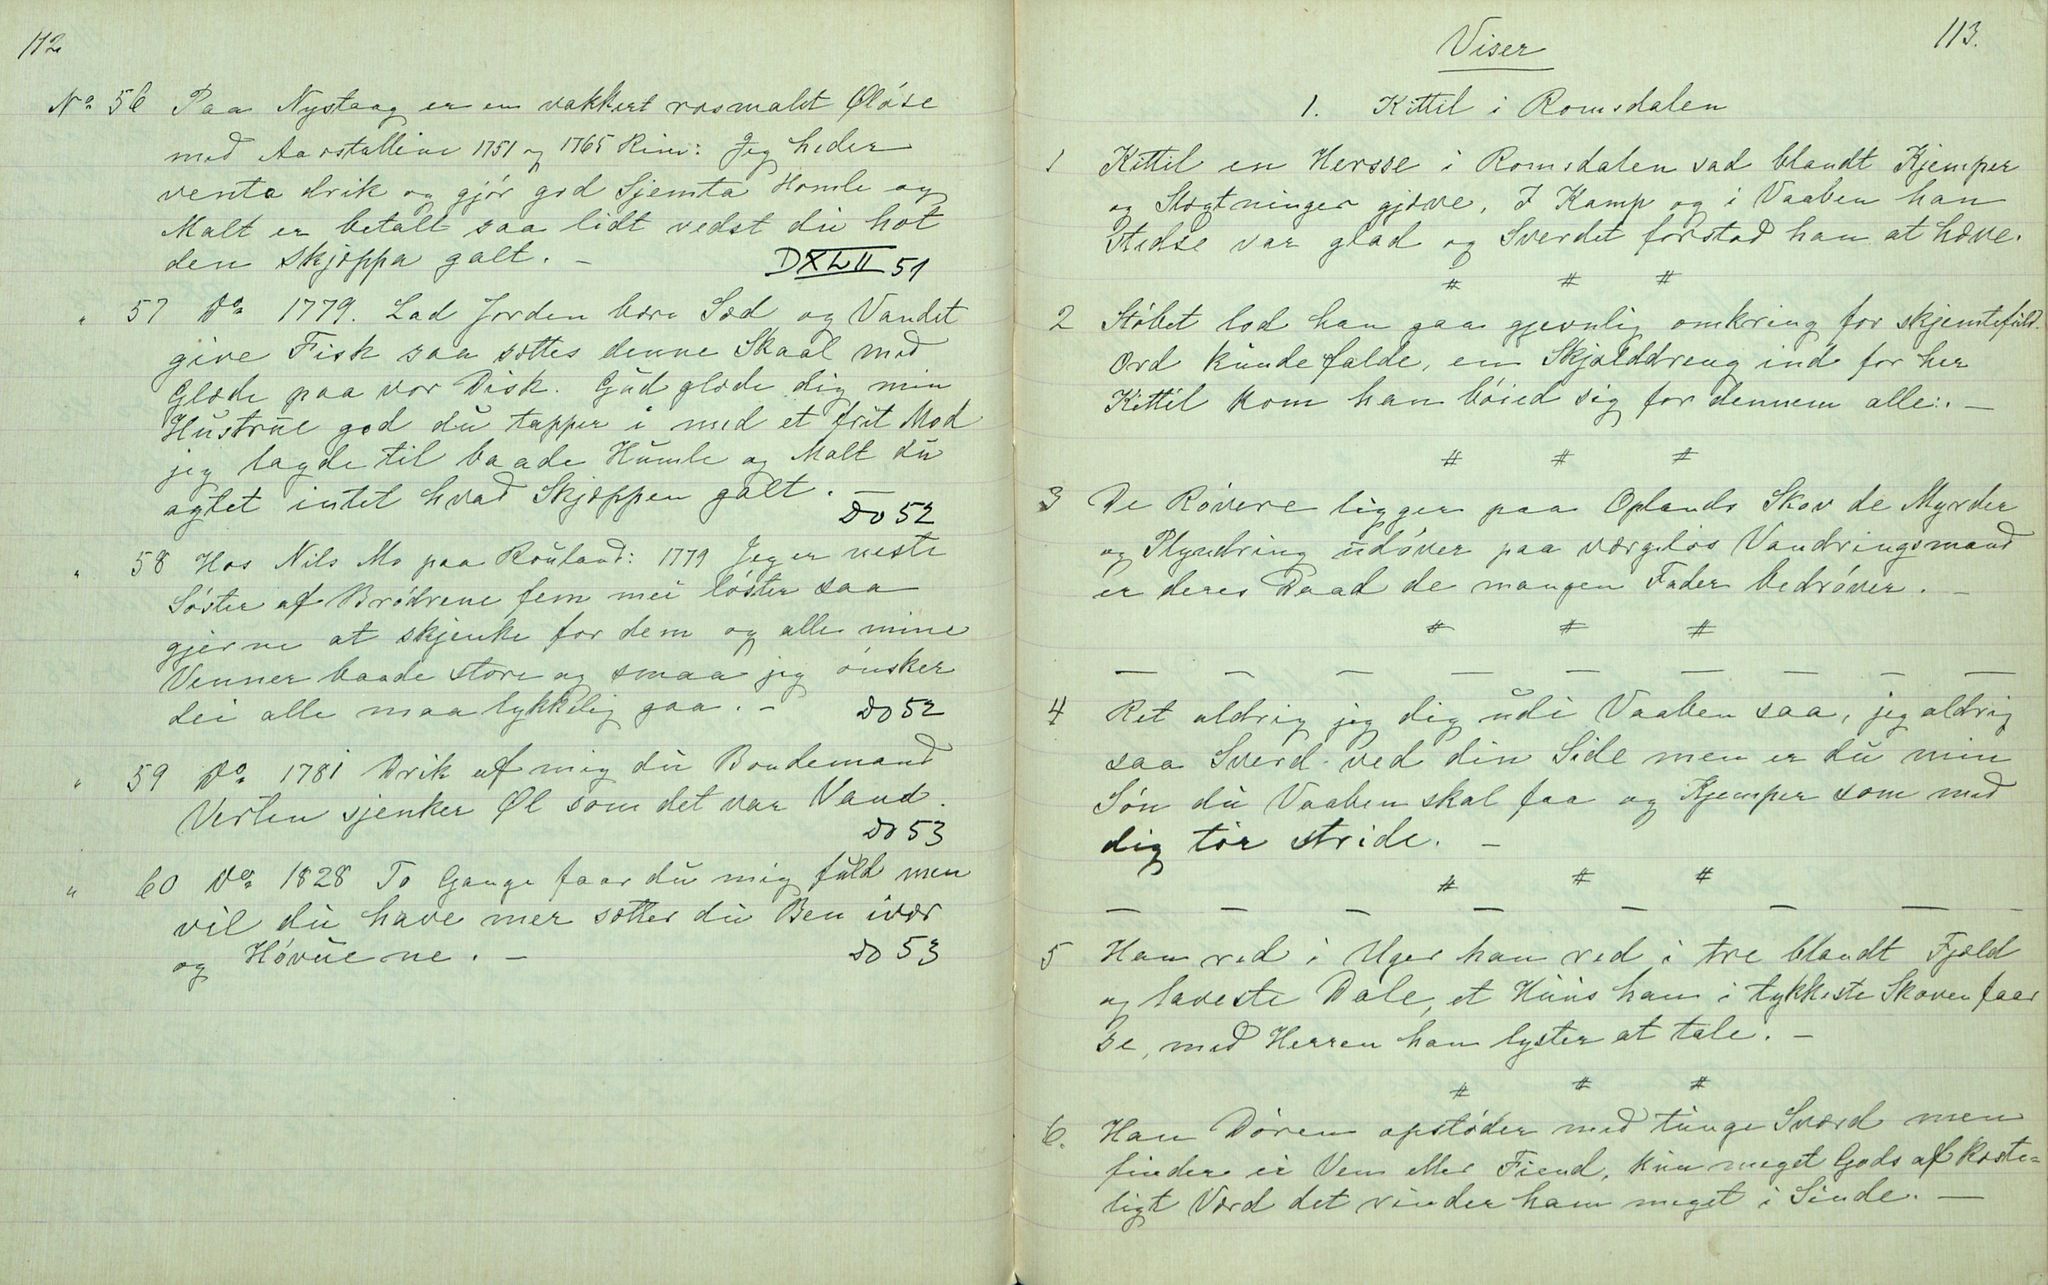 112
No 56 Paa Nystaag er en vakkert rosmalt Øløse
med Aarstallene 1751 og 1765 Rim: Jeg heder
venta drik og gjør god Sjemta Homle og
Malt er betalt saa lidt vedst du hot
den skjæppa galt. –
DXLII 51
" 57 Do 1779. Lad Jorden bære Sæd og Vandet
give Fisk saa sættes denne Skaal med
Glæde paa vor Disk. Gud glæde dig min
Hustrue god du tapper i med et frit Mod
jeg lagde til baade Humle og Malt du
agtet intet hvad Skjæppen galt. –
Do 52
" 58 Hos Nils Mo paa Rouland: 1779 Jeg er neste
Søster af Brødrene fem mei løster saa
gjerne at skjenke for dem og alle mine
Venner baade store og smaa jeg ønsker
dei alle maa lykkelig gaa. –
Do 52
" 59 Do 1781 Drik af mig du Bondemand
Verten sjenker Øl som det var Vand.
Do 53
" 60 Do 1828 To Gange faar du mig fuld men
vil du have mer sætter du Ben ivær
og Høvue ne. –
Do 53
113.
Viser
1. Kittil i Romsdalen
1 Kittil en Hersse i Romsdalen sad blandt Kjemper
og Slægtninger gjæve, I Kamp og i Vaaben han
stedse var glad og Sverdet forstod han at hæve.
# # #
2 Støbet lod han gaa gjevnlig omkring for skjemtefuld.
Ord kunde falde, en Skjolddreng ind for her
Kittil kom han bøied sig for dennem alle:. –
# # #
3 De Røvere ligger paa Oplands Skov de Myrder
og Plyndring udøver paa værgeløs Vandringsmand
er deres Daad de mangen Fader bedrøver. –
# # #
– – – – – – – – –
4 Ret aldrig jeg dig udi Vaaben saa, jeg aldrig
saa Sverd ved din Side men er du min
Søn du Vaaben skal faa og Kjemper som med
dig tør stride. –
# # #
– – – – – – – –
5 Han red i Uger han red i tre blandt Fjæld
og laveste Dale, et Huus han i tykkeste Skoven faar
se, med Herren han lyster at tale. –
# # #
6. Han Døren opstøder med tunge Sværd men
finder ei Ven eller Fiend, kun meget Gods af koste=
ligt Værd det rinder ham meget i Sinde. –